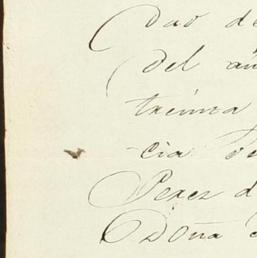 dad de
del añ
treinta
cia
Perez d
Doña